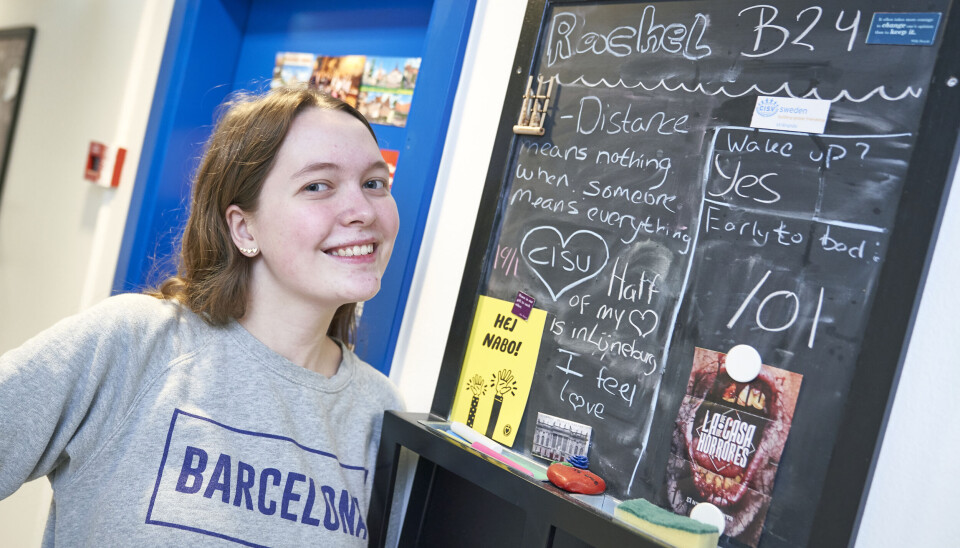 Rachel B24
change
keep it.
CISV sweden
-Distance
means nothing
when someone
means everything
19/1
CISV
Half
of my ♡
is in Lüneburg
I feel
love
Wake up?
Yes
Early to bed:
/0/
HEJ
NABO!
LA CASA
DE
HORRORES
BARCELONA